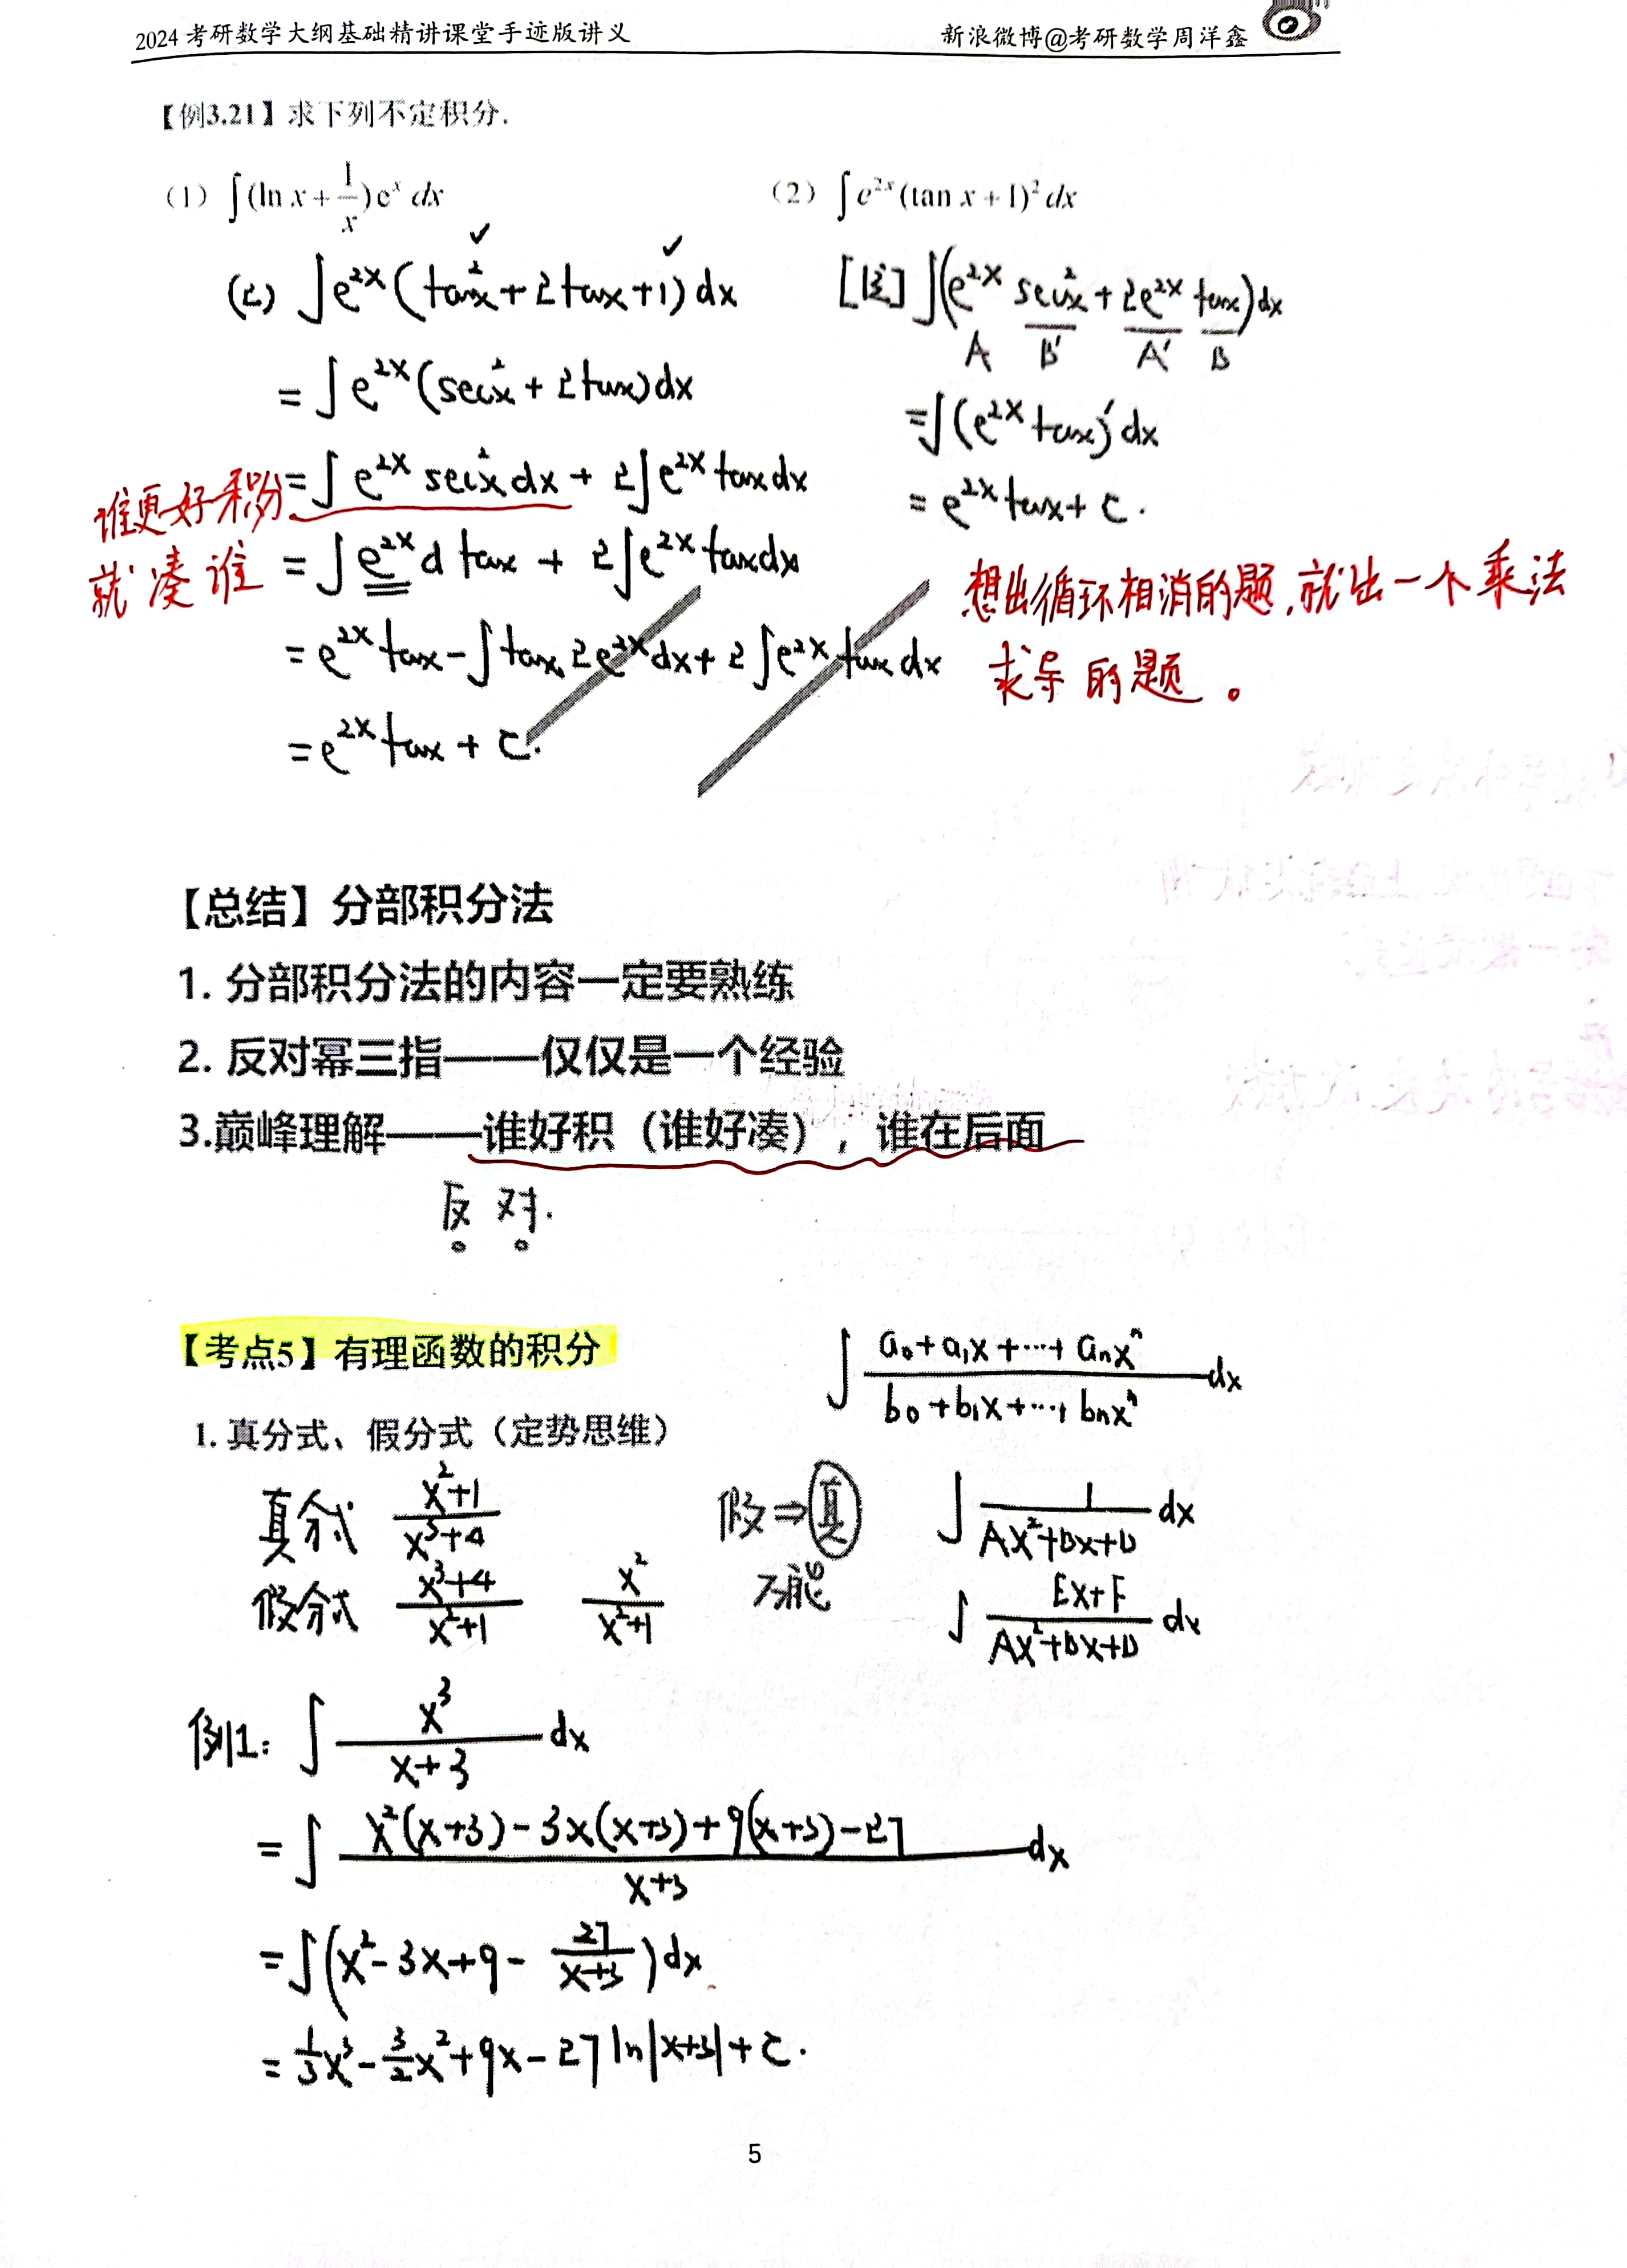 2024考研数学大纲基础精讲课堂手迹版讲义 新浪微博@考研数学周洋鑫
【例3.21】求下列不定积分.
（1）∫(ln x + 1/x)eˣ dx （2）∫e²ˣ(tan x + 1)² dx
(2) ∫e²ˣ(tan²x + 2tanx + 1)dx
= ∫e²ˣ(sec²x + 2tanx)dx
= ∫e²ˣ sec²x dx + 2∫e²ˣ tanx dx
谁更好积分
就凑谁
= ∫e²ˣ d tanx + 2∫e²ˣ tanx dx
= e²ˣ tanx - ∫tanx·2e²ˣ dx + 2∫e²ˣ tanx dx
= e²ˣ tanx + C.
[注] ∫(e²ˣ sec²x + 2e²ˣ tanx)dx
A B' A' B
= ∫(e²ˣ tanx)' dx
= e²ˣ tanx + C.
想出循环相消的题,就出一个乘法
求导的题。
【总结】分部积分法
1. 分部积分法的内容一定要熟练
2. 反对幂三指——仅仅是一个经验
3.巅峰理解——谁好积（谁好凑），谁在后面
反 对.
【考点5】有理函数的积分
∫ (a₀+a₁x+···+aₙxⁿ)/(b₀+b₁x+···+bₙxⁿ) dx
1. 真分式、假分式（定势思维）
真分式 (x²+1)/(x³+4)
假分式 (x³+4)/(x²+1) x²/(x²+1)
假⇒真
万能
∫ 1/(Ax²+Bx+D) dx
∫ (Ex+F)/(Ax²+Bx+D) dx
例1: ∫ x³/(x+3) dx
= ∫ (x²(x+3)-3x(x+3)+9(x+3)-27)/(x+3) dx
= ∫(x²-3x+9- 27/(x+3))dx
= 1/3 x³ - 3/2 x² + 9x - 27 ln|x+3| + C.
5